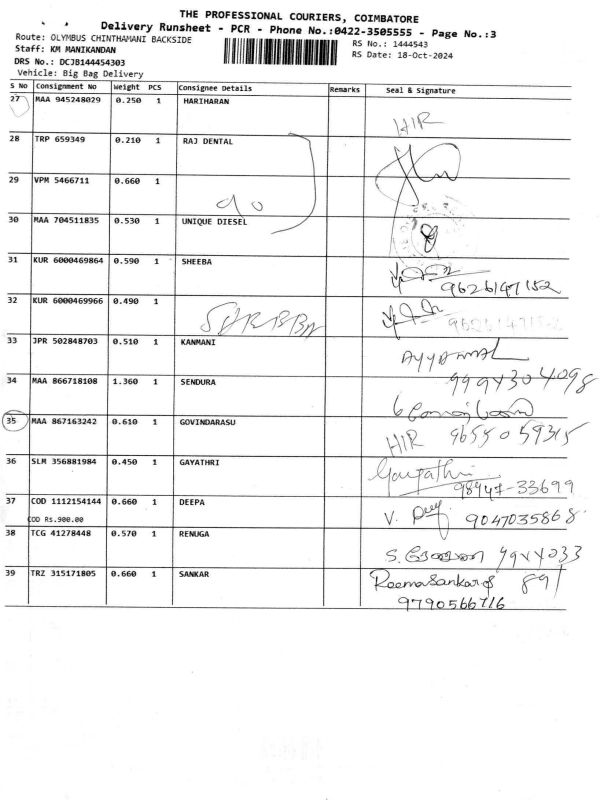 THE PROFESSIONAL COURIERS, COIMBATORE
Delivery Runsheet - PCR - Phone No.:0422-3505555 - Page No.:3
Route: OLYMBUS CHINTHAMANI BACKSIDE
RS No.: 1444543
Staff: KM MANIKANDAN
RS Date: 18-Oct-2024
DRS No.: DCJB144454303
Vehicle: Big Bag Delivery
S No Consignment No Weight PCS Consignee Details Remarks Seal & Signature
27 MAA 945248029 0.250 1 HARIHARAN
HIR
28 TRP 659349 0.210 1 RAJ DENTAL
29 VPM 5466711 0.660 1
do
30 MAA 704511835 0.530 1 UNIQUE DIESEL
31 KUR 6000469864 0.590 1 SHEEBA
9626147152
32 KUR 6000469966 0.490 1
33 JPR 502848703 0.510 1 KANMANI
AYYAMMAL
9994304098
34 MAA 866718108 1.360 1 SENDURA
35 MAA 867163242 0.610 1 GOVINDARASU
HIR 9655059315
36 SLM 356881984 0.450 1 GAYATHRI
Gayathri
98947-33699
37 COD 1112154144 0.660 1 DEEPA
V. 9047035868
COD Rs.900.00
38 TCG 41278448 0.570 1 RENUGA
39 TRZ 315171805 0.660 1 SANKAR
ReemaSankar 89/
9790566716